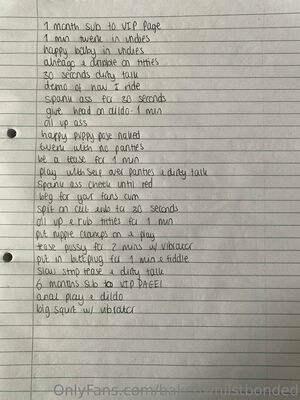 1 month sub to VIP Page
1 min twerk in undies
happy baby in undies
ahegao & dribble on titties
30 seconds dirty talk
demo of how I ride
spank ass for 30 seconds
give head on dildo - 1 min
oil up ass
happy puppy pose naked
twerk with no panties
be a tease for 1 min
play with self over panties & dirty talk
Spank ass cheek until red
beg for your fans cum
spit on clit & rub for 30 seconds
oil up & rub titties for 1 min
put nipple clamps on & play
tease pussy for 2 mins w/ vibrator
put in buttplug for 1 min & fiddle
Slow strip tease & dirty talk
6 months sub to VIP PAGE!
anal play & dildo
big squirt w/ vibrator
OnlyFans.com/